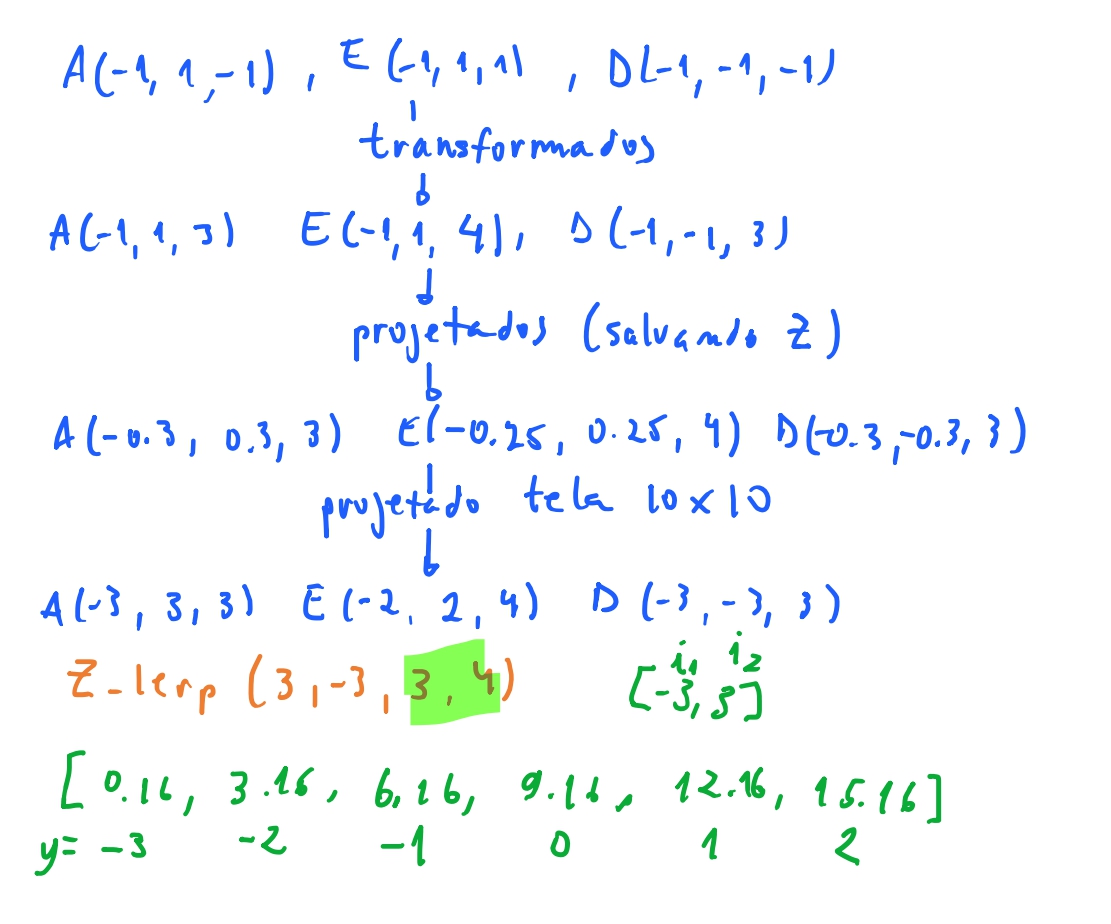 A(-1, 1, -1), E(-1, 1, 1), D(-1, -1, -1)
transformados
A(-1, 1, 3) E(-1, 1, 4), D(-1, -1, 3)
projetados (salvando z)
A(-0.3, 0.3, 3) E(-0.25, 0.25, 4) D(-0.3, -0.3, 3)
projetado tela 10x10
A(-3, 3, 3) E(-2, 2, 4) D(-3, -3, 3)
i1 i2
Z-lerp (3, -3, 3, 4) [-3, 3]
[0.16, 3.16, 6.16, 9.16, 12.16, 15.16]
y= -3 -2 -1 0 1 2